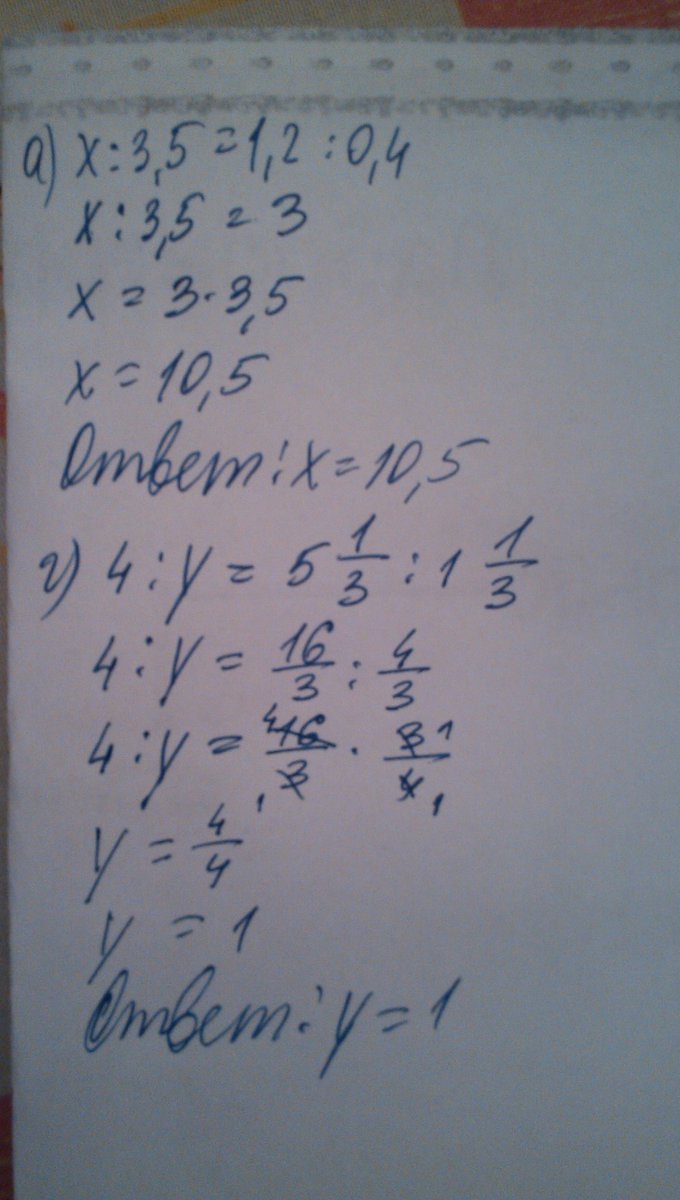 а) x : 3,5 = 1,2 : 0,4
x : 3,5 = 3
x = 3 · 3,5
x = 10,5
Ответ: x = 10,5
г) 4 : y = 5 1/3 : 1 1/3
4 : y = 16/3 : 4/3
4 : y = 4 16/3 1 · 3 1/4 1
y = 4/4
y = 1
Ответ: y = 1